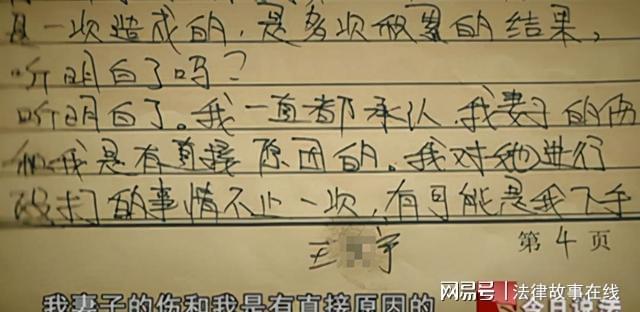 是一次造成的，是多次被累的结果，
听明白了吗？
听明白了。我一直都承认，我妻子的伤
和我是有直接原因的。我对她进行
殴打的事情不止一次，有可能是我下手
王 宇
第 4 页
我妻子的伤和我是有直接原因的
网易号 | 法律故事在线
今日说法